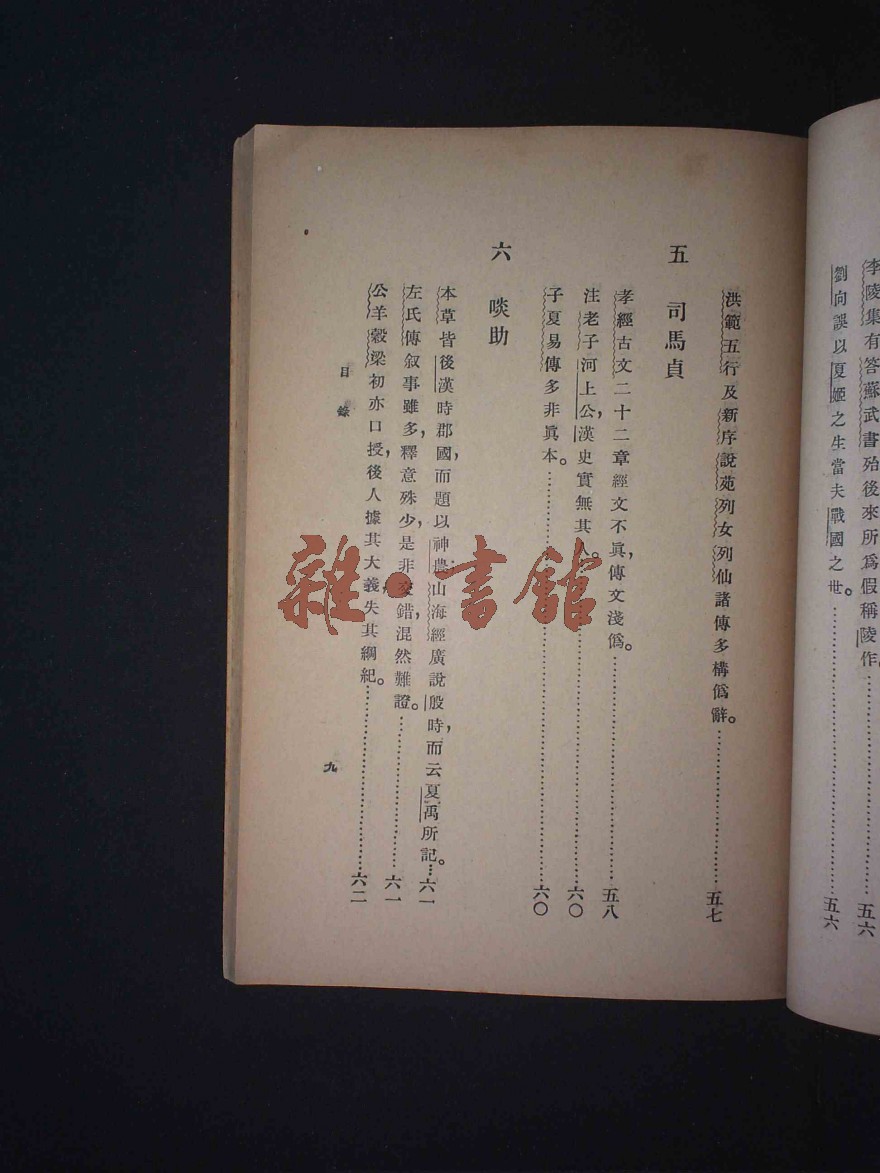 李陵集有答蘇武書殆後來所爲假稱陵作。……五六
劉向誤以夏姬之生當夫戰國之世。……五六
洪範五行及新序說苑列女列仙諸傳多構僞辭。……五七
五 司馬貞
孝經古文二十二章經文不眞,傳文淺僞。……五八
注老子河上公,漢史實無其人。……六〇
子夏易傳多非眞本。……六〇
六 啖助
本草皆後漢時郡國,而題以神農;山海經廣說殷時,而云夏禹所記。…六一
左氏傳叙事雖多,釋意殊少,是非交錯,混然難證。……六一
公羊穀梁初亦口授,後人據其大義,失其綱紀。……六二
目錄
九
雜·書館